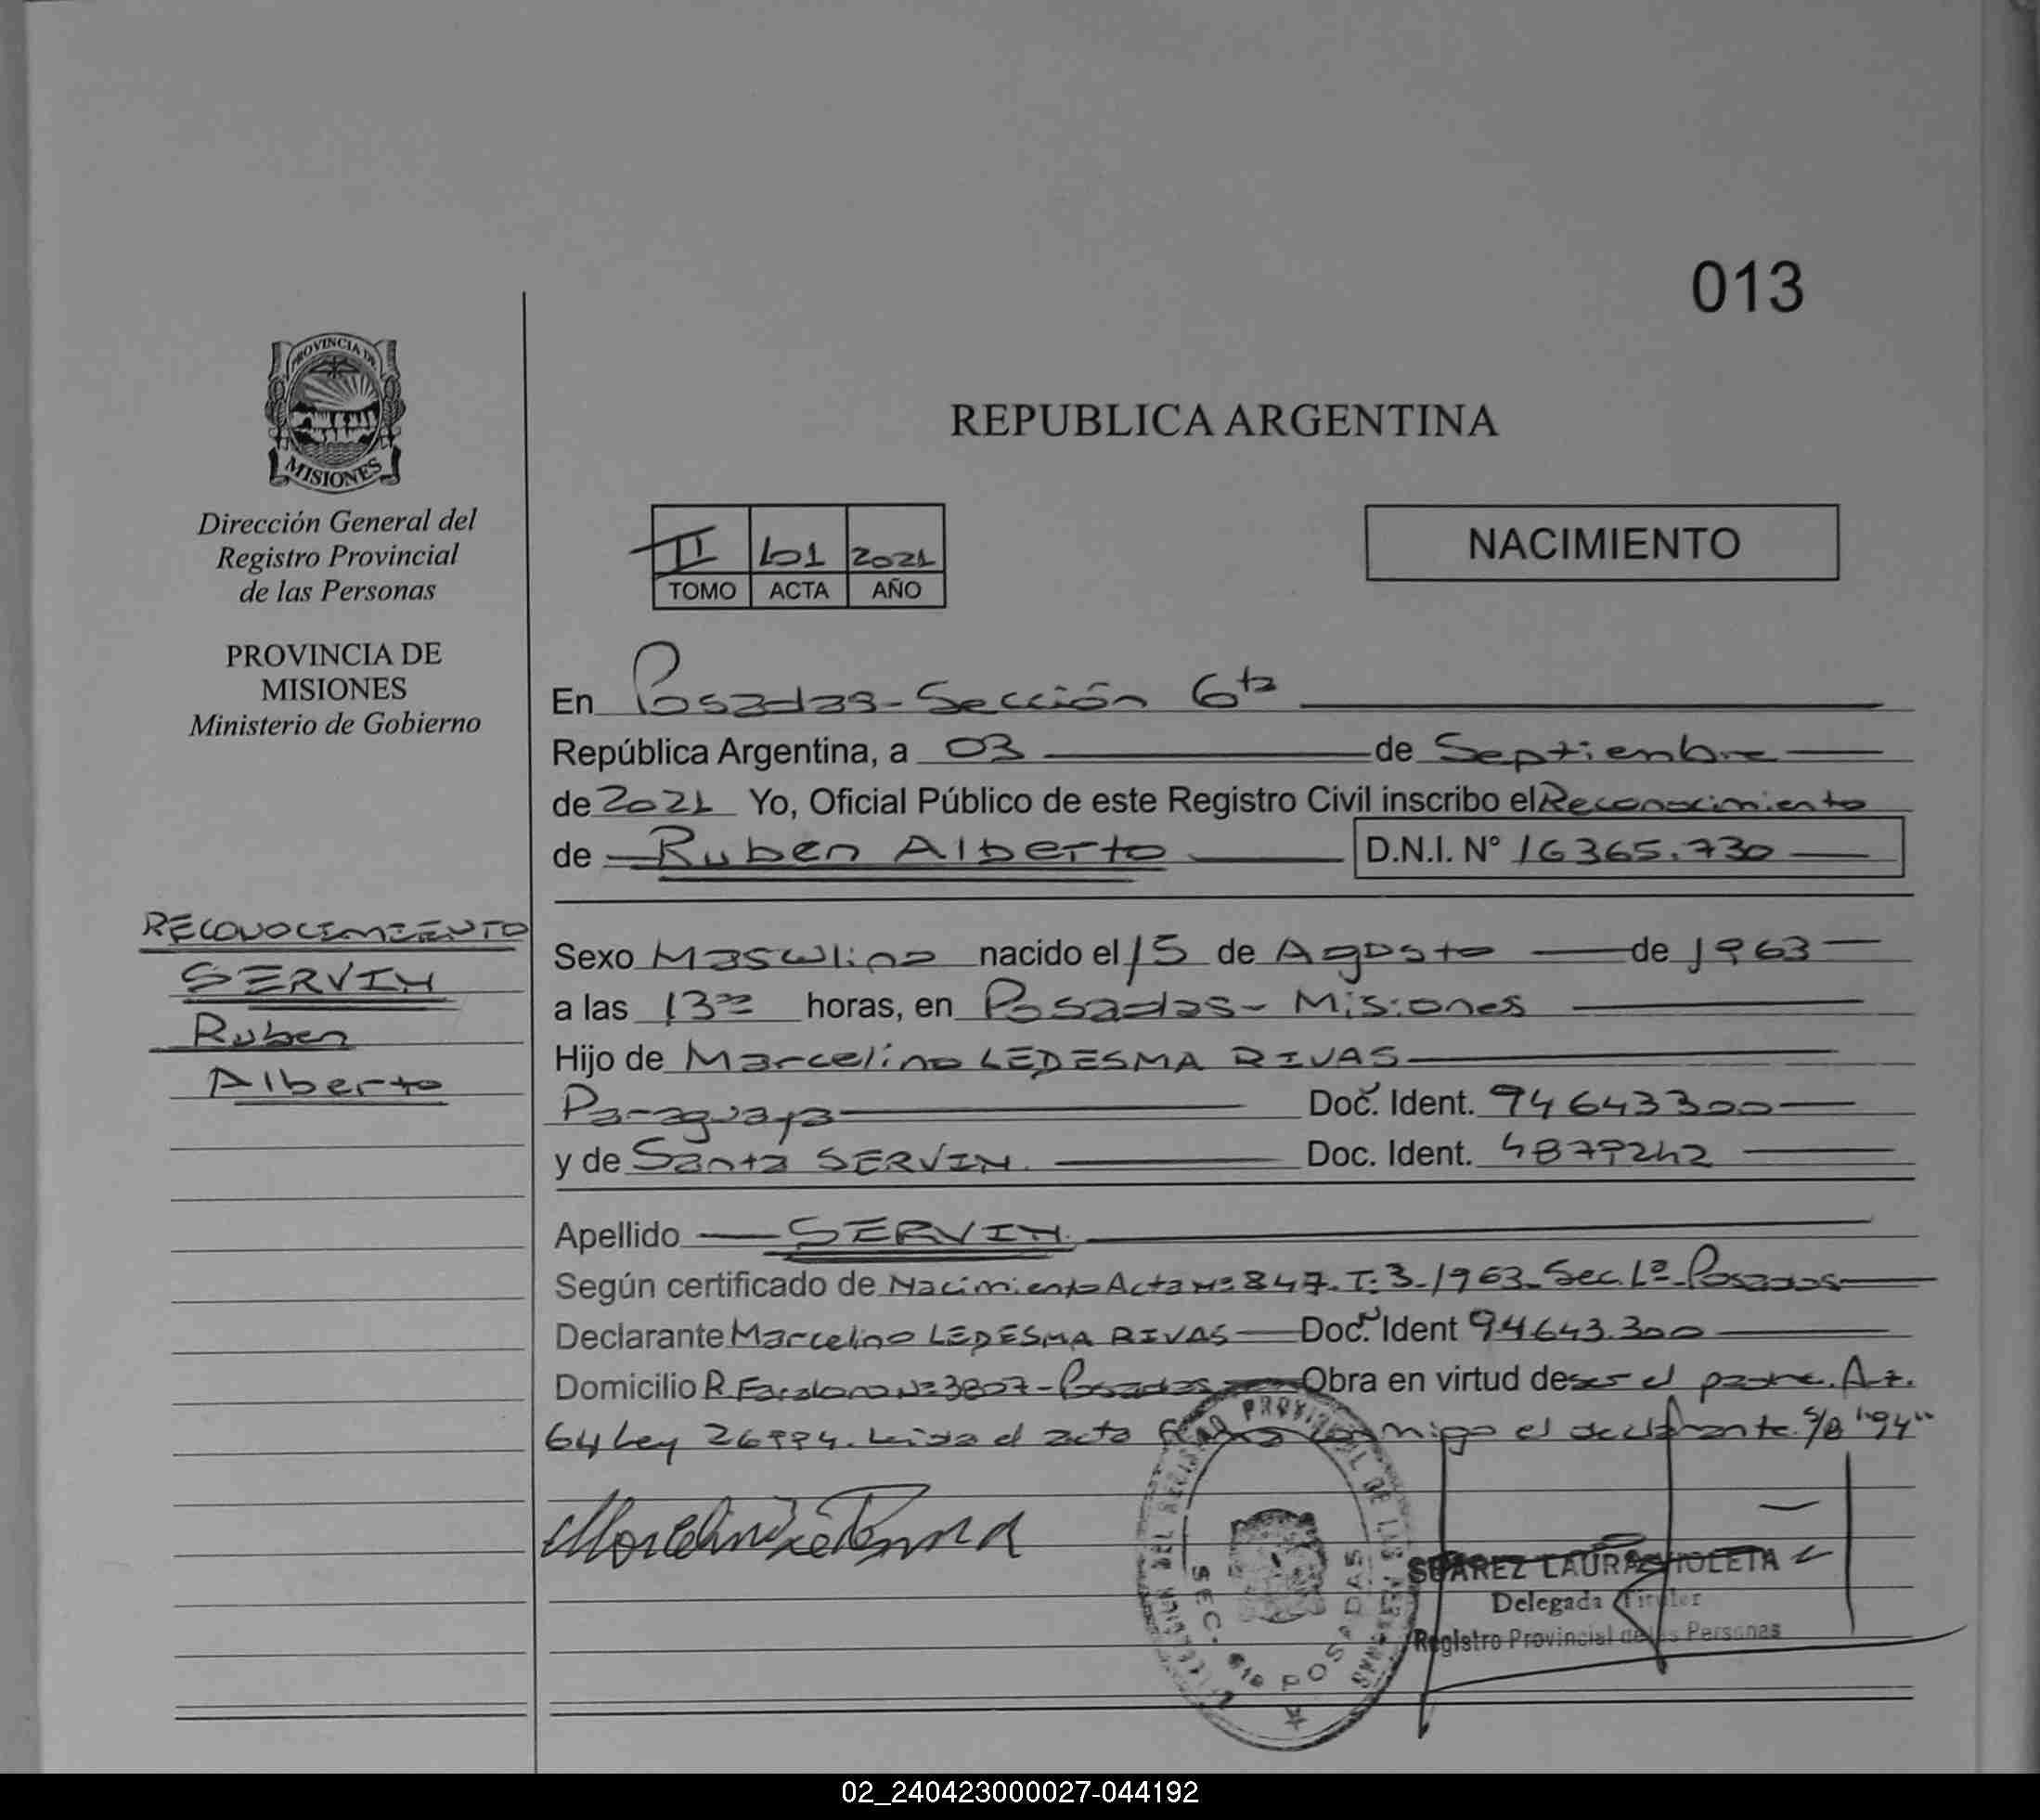 013
PROVINCIA DE
MISIONES
Dirección General del
Registro Provincial
de las Personas
PROVINCIA DE
MISIONES
Ministerio de Gobierno
RECONOCIMIENTO
SERVIN
Ruben
Alberto
REPUBLICA ARGENTINA
II 101 2021
TOMO ACTA AÑO
NACIMIENTO
En Posadas - Sección 6ta
República Argentina, a 03 de Septiembre
de 2021 Yo, Oficial Público de este Registro Civil inscribo el Reconocimiento
de Ruben Alberto D.N.I. N° 16365.730
Sexo Masculino nacido el 15 de Agosto de 1963
a las 13 horas, en Posadas - Misiones
Hijo de Marcelino LEDESMA RIVAS
Paraguaya Doc. Ident. 94643300
y de Santa SERVIN Doc. Ident. 4879242
Apellido SERVIN
Según certificado de Nacimiento Acta Nº 847. T: 3 - 1963 - Sec. 1º - Posadas
Declarante Marcelino LEDESMA RIVAS Doc. Ident 94643.300
Domicilio R. Nº 3807 - Posadas Obra en virtud de ser el padre. Art.
64 Ley 26994. Leida el acta conmigo el declarante. S/B "94"
SUAREZ LAURA VIOLETA
Delegada Titular
Registro Provincial de las Personas
SEC. 6ta POSADAS
02_240423000027-044192